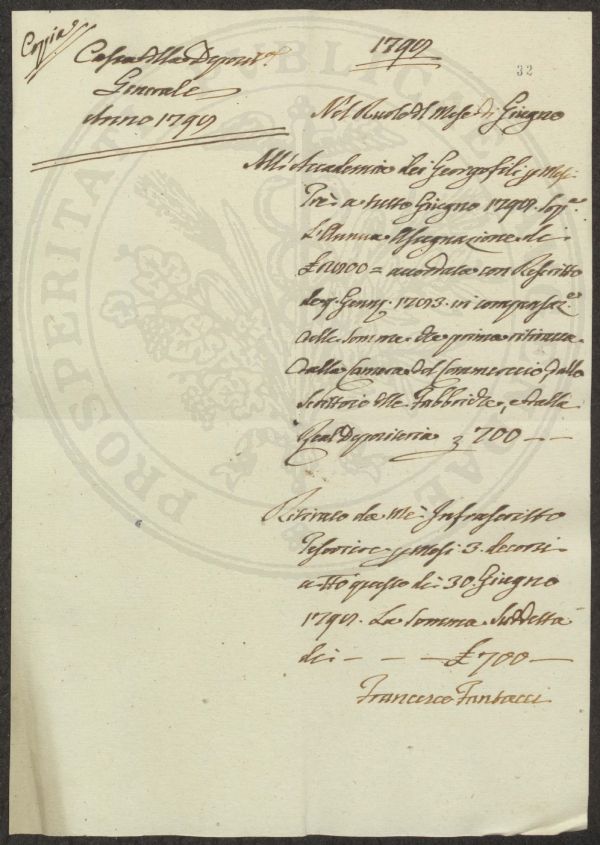 Copia
Cassa della Deposit.
Generale
Anno 1795
1795
32
Nel Ruolo del Mese di Giugno
All'Accademia dei Georgofili p Mesi
Tre a tutto Giugno 1795. Sop.
L'Annua Assegnazione di
£ 2800 = accordata con Rescritto
de 9. Genn. 1783. in compensaz.e
delle Somme da prima ritirate
dalla Camera del Commercio, dallo
Scrittoio delle Fabbriche, e dalla
Real Depositeria 700 - -
Ritirato da Me Infrascritto
Tesoriere p Mesi 3. decorsi
a tto questo di 30. Giugno
1795. La Somma Suddetta
di - - - £ 700 -
Francesco Fantacci
PROSPERITATI PUBLICAE